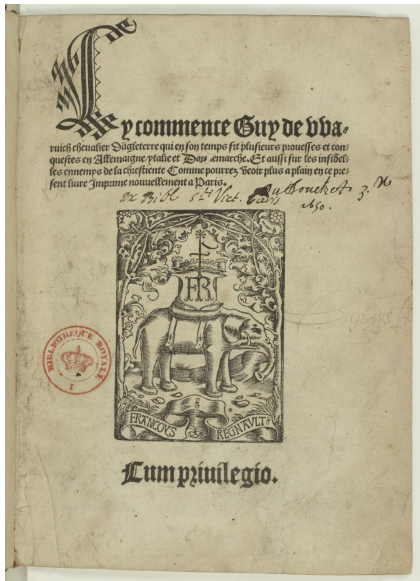 Cy commence Guy de vva-
ruich cheualier Dāgleterre qui en son temps fit plusieurs prouesses et con-
questes en Allemaigne ytalie et Dannemarche. Et aussi sur les infidel-
les ennemys de la chrestiente Comme pourrez veoir plus a plain en ce pre-
sent liure Imprime nouuellement a Paris.
ex Bibl. Sti Vict. Paris
1650.
FR
FRANCOYS REGNAULT
BIBLIOTHEQUE ROYALE
Cum priuilegio.